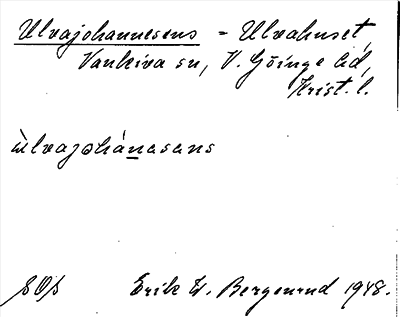 Ulvajohannesens = Ulvahuset,
Vankiva sn, V. Göinge hd,
Krist. l.
ùlvajohánasens
SOf Erik W. Bergenrud 1948.